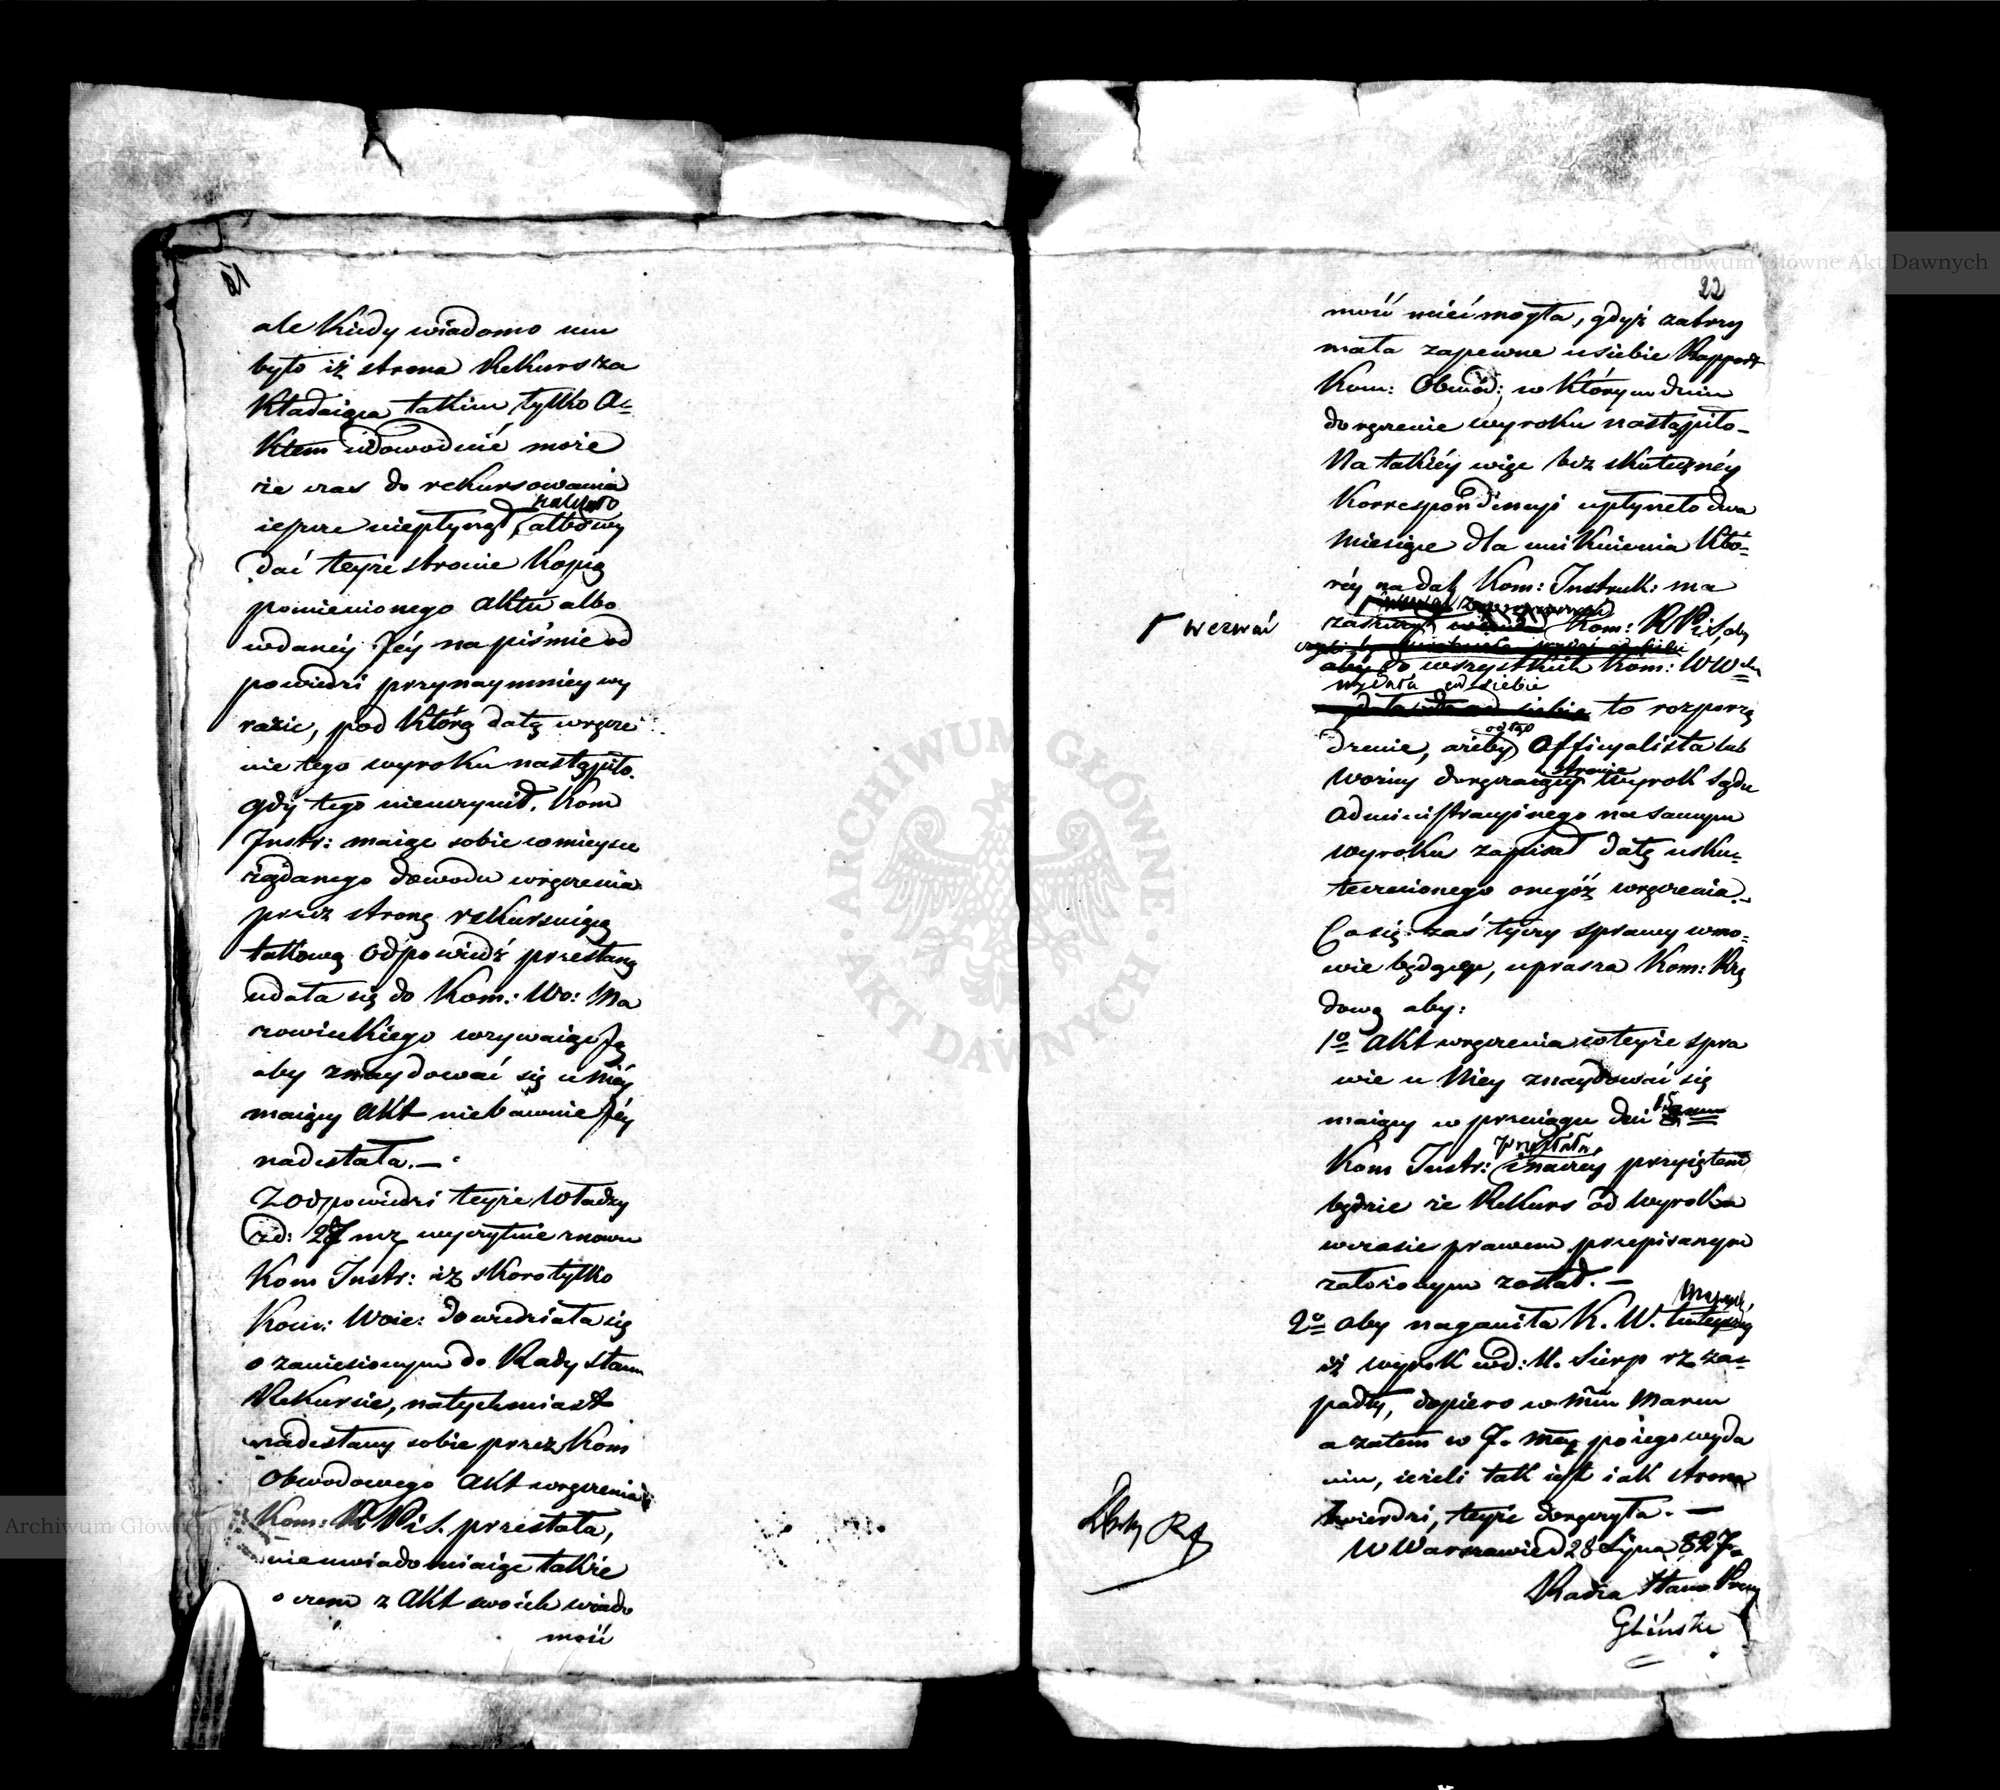 21
ale kiedy wiadomo mu
było iż strona Rekurs za
kładaiąca takim tylko A-
ktem udowodnić może
że czas do rekursowania
ieszcze niepłynął należało albo wy
dać teyże stronie kopią
pomienionego aktu albo
wdaney Jéy na piśmie od
powiedzi przynaymniey wy
razić, pod którą datą wręcze
nie tego wyroku nastąpiło.
gdy tego nieuczynił, Kom
Instr: maiąc sobie w mieysce
żądanego dowodu wręczenia
przez stronę rekursuiącą
takową odpowiedź przesłaną
udała się do Kom: Wo: Ma
zowieckiego wzywaiąc Ją
aby znaydować się u Niéy
maiący akt niebawnie Jéy
nadesłała. —
Z odpowiedzi teyże Władzy
27 wyczytuie znowu
Kom Instr: iż skoro tylko
Kom: Woie: dowiedziała się
o zaniesionym do Rady Stanu
Rekursie, natychmiast
nadesłany sobie przez Kom
Obwodowego akt wręczenia
Kom: R. P. i S. przesłała,
nieuwiadomiaiąc także
o czem z akt swoich wiado
mość
22
mość mieć mogła, gdyż zatrzy
mała zapewne u siebie Rapport
Kom: Obwod: w którym dniu
doręczenie wyroku nastąpiło –
Na takiéy więc bezskuteczney
Korrespondencyi upłyneło dwa
Miesiące dla uniknienia któ-
réy na dal Kom: Instruk: ma
zaszczyt Kom: R. P. i S. aby
wezwać
aby do wszystkich Kom: WW
wydała od siebie
to rozporzą
dzenie, ażeby odtąd Officyalista lub
Woźny doręczaiący stronie wyrok Sądu
Administracyinego na samym
wyroku zapisał datę usku-
tecznionego onegóż wręczenia. –
Co się zaś tyczy sprawy w mo-
wie będącey, uprasza Kom: Rzą
dową aby:
1o Akt wręczenia w teyże spra
wie u Niey znaydować się
maiący w przeciągu dni 15
Kom Instr: przesłała, inaczey przyiętem
będzie że Rekurs od Wyroku
w czasie prawem przepisanym
założonym został. —
2o aby naganiła K. W.
iż wyrok Sierp za-
padły, dopiero w Marcu
a zatem w 7. po iego wyda
niu, ieżeli tak iest iak strona
twierdzi, teyże doręczyła. —
W Warszawie d 28 Lipca 827.
Radca Stanu
Gliński